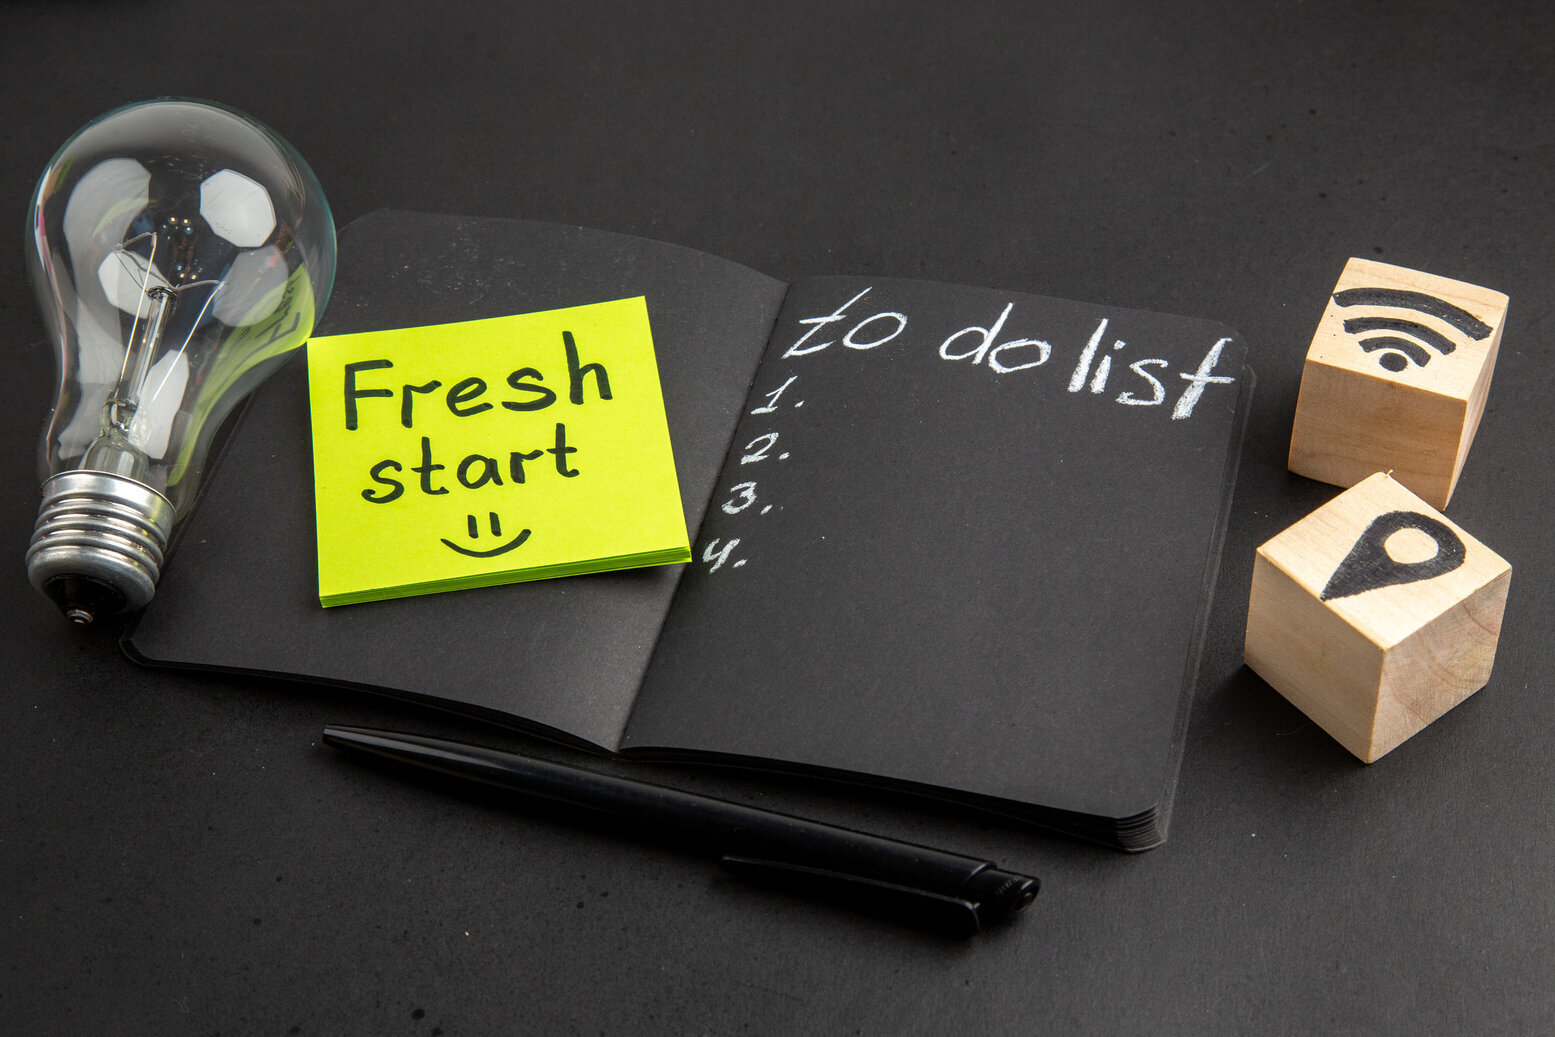 Fresh
start
to do list
1.
2.
3.
4.